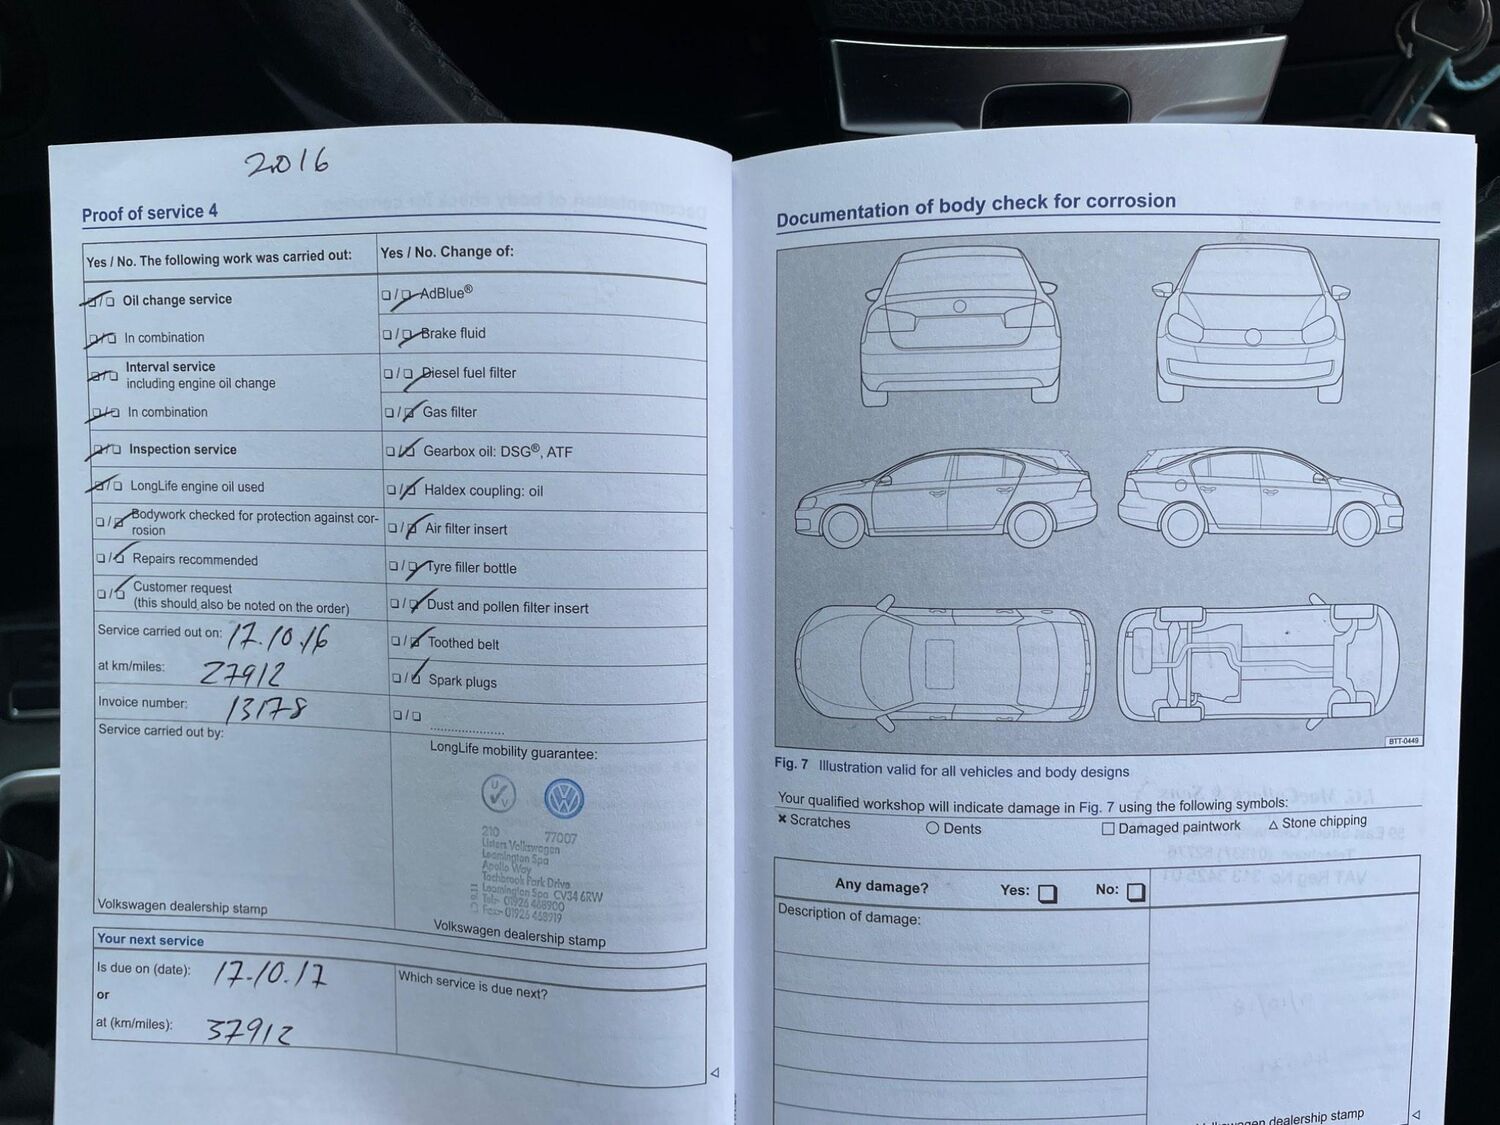 2016
Proof of service 4
Yes / No. The following work was carried out:
☐/☐ Oil change service
☐/☐ In combination
☐/☐ Interval service
including engine oil change
☐/☐ In combination
☐/☐ Inspection service
☐/☐ LongLife engine oil used
☐/☐ Bodywork checked for protection against cor-
rosion
☐/☐ Repairs recommended
☐/☐ Customer request
(this should also be noted on the order)
Service carried out on: 17.10.16
at km/miles: 27912
Invoice number: 13178
Service carried out by:
Volkswagen dealership stamp
Yes / No. Change of:
☐/☐ AdBlue®
☐/☐ Brake fluid
☐/☐ Diesel fuel filter
☐/☐ Gas filter
☐/☐ Gearbox oil: DSG®, ATF
☐/☐ Haldex coupling: oil
☐/☐ Air filter insert
☐/☐ Tyre filler bottle
☐/☐ Dust and pollen filter insert
☐/☐ Toothed belt
☐/☐ Spark plugs
☐/☐ ....................
LongLife mobility guarantee:
210 77007
Listers Volkswagen
Leamington Spa
Apollo Way
Tachbrook Park Drive
Leamington Spa CV34 6RW
Tel:- 01926 468900
Fax:- 01926 468919
Volkswagen dealership stamp
Your next service
Is due on (date): 17.10.17
or
at (km/miles): 37912
Which service is due next?
Documentation of body check for corrosion
BTT-0449
Fig. 7 Illustration valid for all vehicles and body designs
Your qualified workshop will indicate damage in Fig. 7 using the following symbols:
× Scratches ○ Dents □ Damaged paintwork △ Stone chipping
Any damage? Yes: ☐ No: ☐
Description of damage:
dealership stamp